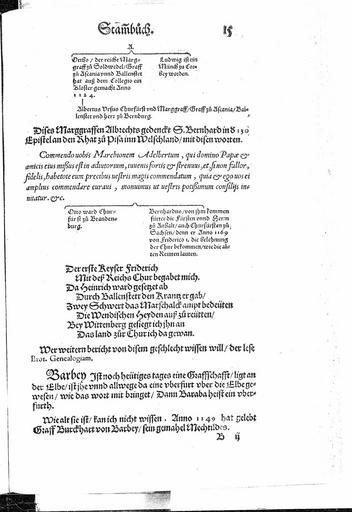 Stam̃bůch. 15
A
Ottho / der reiche Marg-
graff zů Soldwedel / Graff
zů Ascania vnd Ballenstet
hat auß dem Collegio ein
Kloster gemacht Anno
1124.
Ludwig ist ein
Münch zů Cor-
bey worden.
Albertus Vrsus Churfürst vnd Marggraff / Graff zů Ascania / Bal-
lenstet vnd herr zů Bernburg.
Dises Marggraffen Albrechts gedenckt S. Bernhard in d 130
Epistel an den Rhat zů Pisa in Welschland / mit disen worten.
Commendo uobis Marchionem Adelbertum, qui domino Papæ &
amicis eius missus est in adiutorium, iuuenis fortis & strenuus, et, si non fallor,
fidelis, habetote eum precibus nostris magis commendatum, quia & ego uos ei
amplius commendare curaui, monuimus ut uestris potissimum consilijs in-
nitatur. &c.
Otto ward Chur-
fürst zů Branden-
burg.
Bernhardus, von jhm kommen
fürter die Fürsten vnnd Herrn
zů Anhalt / auch Churfürsten zů
Sachsen, dann er Anno 1169
von Friderico 1. die belehnung
der Chur bekommen / wie die al-
ten Reimen lauten.
Der erste Keyser Friderich
Mit deß Reichs Chur begabet mich.
Da Heinrich ward gesetzt ab
Durch Ballenstett den Krantz er gab /
Zwey Schwert das Marschalck ampt bedeüten
Die Wendischen Heyden auß zů reütten /
Bey Wittenberg gesieget ich jhn an
Das land zůr Chur ich da gewan.
Wer weitern bericht von disem geschlecht wissen will / der lese
Brot. Genealogium.
Barbey Ist noch heütiges tages eine Graffschafft / ligt an
der Elbe / ist jhe vnnd allwege da eine vberfurt vber die Elbe ge-
wesen / wie das wort mit bringet / Dann Baraba heist ein vber-
fürth.
Wie alt sie ist / kan ich nicht wissen. Anno 1149 hat gelebt
Graff Burckhart von Barbey / sein gemahel Mechtildes.
B ij